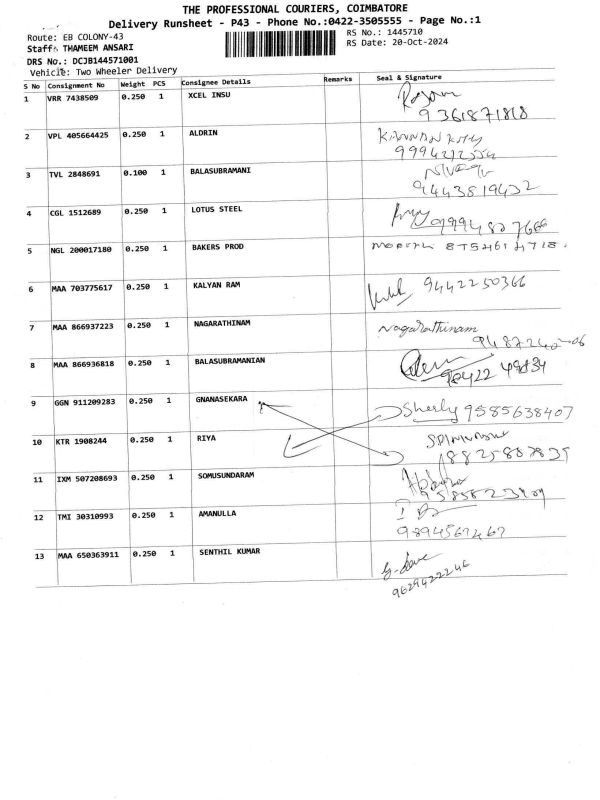 THE PROFESSIONAL COURIERS, COIMBATORE
Delivery Runsheet - P43 - Phone No.:0422-3505555 - Page No.:1
Route: EB COLONY-43
RS No.: 1445710
Staff: THAMEEM ANSARI
RS Date: 20-Oct-2024
DRS No.: DCJB144571001
Vehicle: Two Wheeler Delivery
S No Consignment No Weight PCS Consignee Details Remarks Seal & Signature
1 VRR 7438509 0.250 1 XCEL INSU
9361871818
2 VPL 405664425 0.250 1 ALDRIN
3 TVL 2848691 0.100 1 BALASUBRAMANI
9443819432
4 CGL 1512689 0.250 1 LOTUS STEEL
5 NGL 200017180 0.250 1 BAKERS PROD
6 MAA 703775617 0.250 1 KALYAN RAM 9442250366
7 MAA 866937223 0.250 1 NAGARATHINAM Nagarathinam
8 MAA 866936818 0.250 1 BALASUBRAMANIAN
9 GGN 911209283 0.250 1 GNANASEKARA Sherly 9585638407
10 KTR 1908244 0.250 1 RIYA
11 IXM 507208693 0.250 1 SOMUSUNDARAM
12 TMI 30310993 0.250 1 AMANULLA
13 MAA 650363911 0.250 1 SENTHIL KUMAR
9629422246